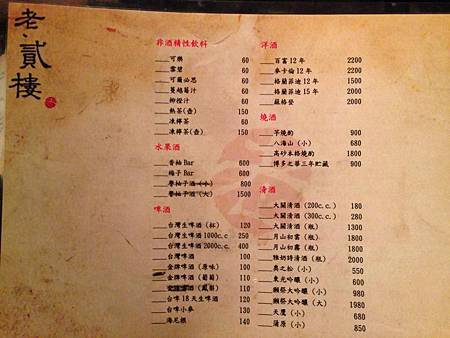 老·貳樓
非酒精性飲料
可樂 60
雪碧 60
可爾必思 60
蔓越莓汁 60
柳橙汁 60
熱茶(壺) 150
凍檸茶 60
凍檸茶(壺) 150
水果酒
香柚 Bar 600
梅子 Bar 600
夢柚子酒(小) 800
夢柚子酒(大) 1500
啤酒
台灣生啤酒(杯) 120
台灣生啤酒 1000c.c 250
台灣生啤酒 2000c.c. 400
台灣啤酒 100
金牌啤酒(原味) 100
金牌啤酒(葡萄) 110
金牌啤酒(鳳梨) 110
台啤 18 天生啤酒 120
台啤小麥 130
海尼根 140
洋酒
百富 12 年 2200
麥卡倫 12 年 2200
格蘭菲迪 12 年 1500
格蘭菲迪 15 年 2000
蘇格登 2000
燒酒
芋燒酌 900
八海山(小) 680
高砂本格燒酌 1800
博多之華三年貯藏 900
清酒
大關清酒(200c.c.) 180
大關清酒(300c.c.) 280
大關清酒(瓶) 1300
月山初霧(瓶) 1800
月山初霧(瓶) 1800
雅奶詩清酒(瓶) 2000
奧之松(小) 550
東光吟釀(小) 600
獺祭大吟釀(小) 980
獺祭大吟釀(大) 1980
天鷹(小) 680
蒲原(小) 850